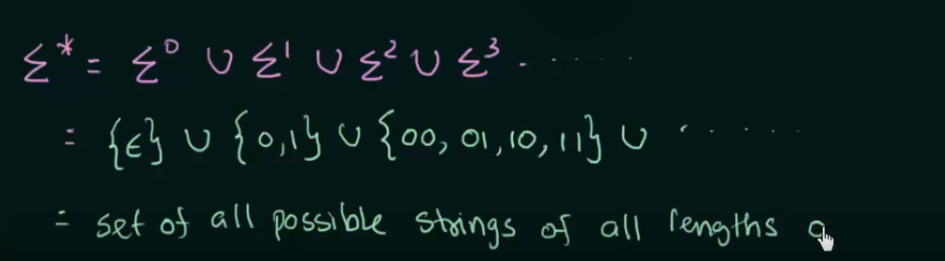 Σ* = Σ⁰ ∪ Σ¹ ∪ Σ² ∪ Σ³ . . . . . .
= {ϵ} ∪ {0,1} ∪ {00, 01, 10, 11} ∪ . . . . . .
= set of all possible strings of all lengths